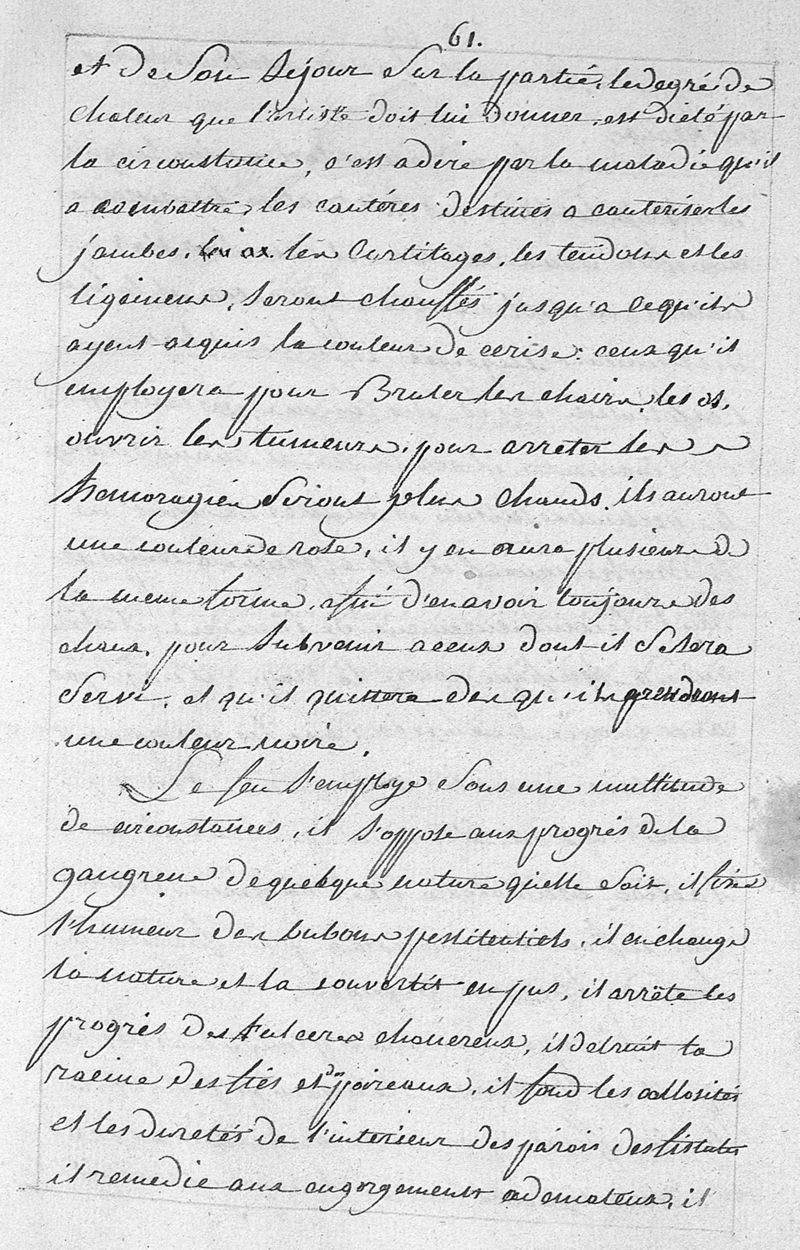 61.
et de son séjour sur la partie, le degré de
chaleur que l'artiste doit lui donner, est dicté par
la circonstance, c'est a dire par la maladie qu'il
a combattre, les cautéres destinés a cauteriser les
jambes, les cartilages, les tendons et les
ligamens, seront chauffés jusqu'a ce qu'ils
ayent acquis la couleur de cerise: ceux qu'il
employera pour Bruler les chairs, les os,
ouvrir les tumeurs, pour arreter les
hemoragies seront plus chauds, ils auront
une couleur de rose, il y en aura plusieurs de
la meme forme, afin d'en avoir toujours des
chaux, pour subvenir a ceux dont il se sera
servi, et qu'il quittera des qu'ils prendront
une couleur noire.
Le feu s'employe sous une multitude
de circonstances, il s'oppose aux progrés de la
gangrene de quelque nature quelle soit, il fixe
l'humeur des bubons pestilentiels, il en change
la nature et la convertit en pus, il arrête les
progrés des ulceres chancreux, il detruit la
racine des fics et des poireaux, il fond les callosités
et les duretés de l'interieur des parois des fistules
il remedie aux engorgements œdemateux, il